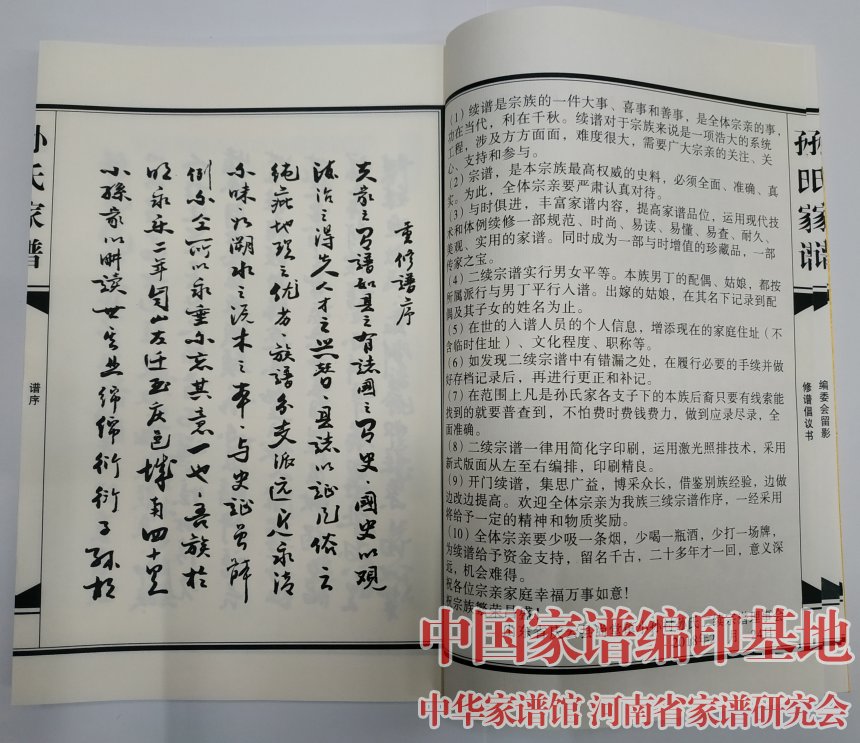 孙氏家谱
谱序
重修谱序
夫家之有谱如县之有志国之有史·国史以观
政治之得失人才之兴替·县志以证风俗之
纯疵地理之优劣·族谱分支派远近永清
不昧如溯水之流木之本·与史证虽
例不同而以永垂不忘其意一也·吾族于
明永乐二年自山左迁至庆邑城南四十里
小孙家以耕读世其业绵绵衍衍子孙
(1)续谱是宗族的一件大事、喜事和善事，是全体宗亲的事，
功在当代，利在千秋。续谱对于宗族来说是一项浩大的系统
工程，涉及方方面面，难度很大，需要广大宗亲的关注、关
心、支持和参与。
(2)宗谱，是本宗族最高权威的史料，必须全面、准确、真
实。为此，全体宗亲要严肃认真对待。
(3)与时俱进，丰富家谱内容，提高家谱品位，运用现代技
术和体例续修一部规范、时尚、易读、易懂、易查、耐久、
美观、实用的家谱。同时成为一部与时增值的珍藏品，一部
传家之宝。
(4)二续宗谱实行男女平等。本族男丁的配偶、姑娘，都按
所属派行与男丁平行入谱。出嫁的姑娘，在其名下记录到配
偶及其子女的姓名为止。
(5)在世的入谱人员的个人信息，增添现在的家庭住址（不
含临时住址）、文化程度、职称等。
(6)如发现二续宗谱中有错漏之处，在履行必要的手续并做
好存档记录后，再进行更正和补记。
(7)在范围上凡是孙氏家各支子下的本族后裔只要有线索能
找到的就要普查到，不怕费时费钱费力，做到应录尽录，全
面准确。
(8)二续宗谱一律用简化字印刷，运用激光照排技术，采用
新式版面从左至右编排，印刷精良。
(9)开门续谱，集思广益，博采众长，借鉴别族经验，边做
边改边提高。欢迎全体宗亲为我族三续宗谱作序，一经采用
将给予一定的精神和物质奖励。
(10)全体宗亲要少吸一条烟，少喝一瓶酒，少打一场牌，
为续谱给予资金支持，留名千古，二十多年才一回，意义深
远，机会难得。
祝各位宗亲家庭幸福万事如意！
祝宗族繁荣昌盛！
孙氏家谱
编委会留影
修谱倡议书
中国家谱编印基地
中华家谱馆 河南省家谱研究会